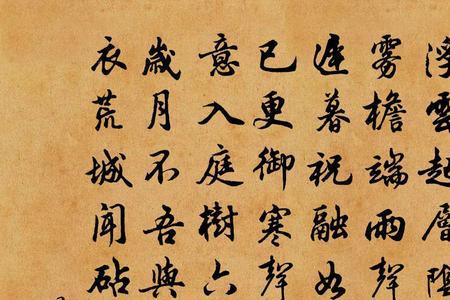 浮雲起層陰
霧檐端雨聲
遲暮祝融如
已更御寒聲
意入庭樹六
歲月不吾與
衣荒城聞砧